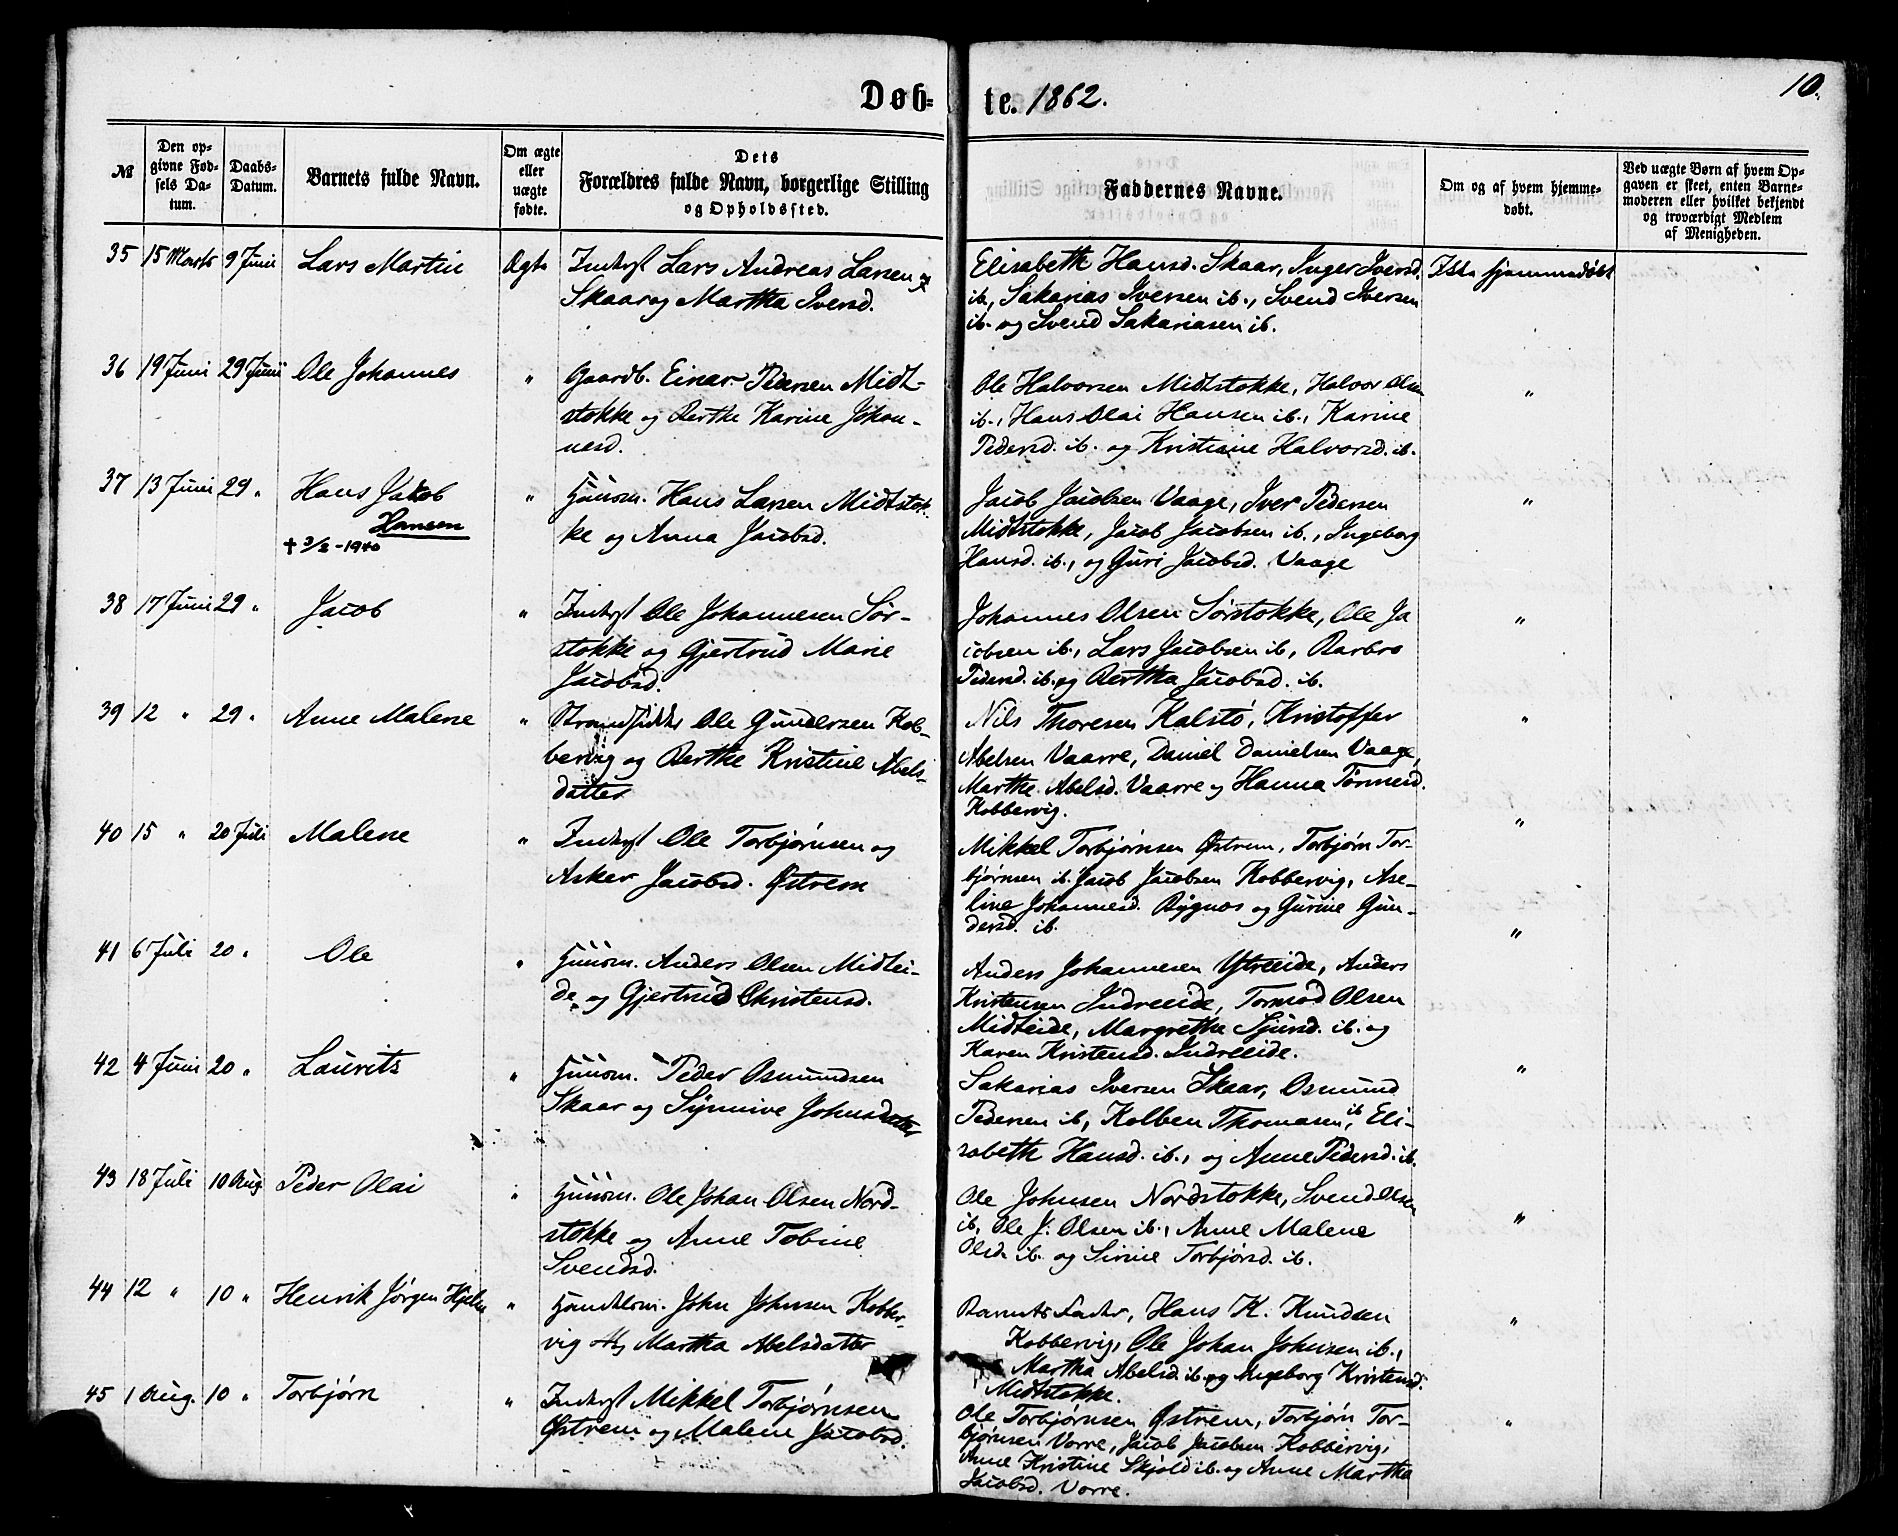 Døb-
te. 1862.
10.
№
Den op-
givne Fød-
sels Da-
tum.
Daabs-
Datum.
Barnets fulde Navn.
Om ægte
eller
uægte
fødte.
Dets
Forældres fulde Navn, borgerlige Stilling
og Opholdssted.
Faddernes Navne.
Om og af hvem hjemme-
døbt.
Ved uægte Børn af hvem Op-
gaven er skeet, enten Barne-
moderen eller hvilket bekjendt
og troværdigt Medlem
af Menigheden.
35 15 Marts 9 Juni Lars Martin Ægte Inderst Lars Andreas Larsen
Skaar og Martha Iversd.
Elisabeth Hansd. Skaar, Inger Iversd.
ib, Sakarias Iversen ib., Svend Iversen
ib. og Svend Sakariasen ib.
Ikke hjemmedøbt
36 19 Juni 29 Juni Ole Johannes " Gaardb. Einar Pedersen Midt-
stokke og Berthe Karine Johan-
nesd.
Ole Halvorsen Midtstokke, Halvor Olsen
ib., Hans Olai Hansen ib., Karine
Pedersd. ib. og Kristiane Halvorsd. ib.
"
37 13 Juni 29 " Hans Jakob
Hansen
+ 3/2 - 1940
" Huusm. Hans Larsen Midtstok-
ke og Anna Jacobsd.
Jacob Jacobsen Vaage, Iver Pedersen
Midtstokke, Jacob Jacobsen ib., Ingeborg
Hansd. ib., og Guri Jacobsd. Vaage
"
38 17 Juni 29 " Jacob " Inderst Ole Johannesen Sør-
stokke og Gjertrud Marie
Jacobsd.
Johannes Olsen Sørstokke, Ole Ja
cobsen ib., Lars Jacobsen ib, Barbro
Pedersd. ib. og Bertha Jacobsd. ib.
"
39 12 " 29 " Anne Malene " Strandsidder Ole Gundersen Kob-
bervig og Berthe Kristine Abels-
datter
Nils Thoresen Kalstø, Kristoffer
Abelsen Vaarre, Daniel Danielsen Vaage,
Marthe Abelsd. Vaarre og Hanna Tormesd.
Kobbervig.
"
40 15 " 20 Juli Malene " Inderst Ole Torbjørnsen og
Asker Jacobsd. Østrem
Mikkel Torbjørnsen Østrem, Torbjørn Tor-
bjørnsen ib. Jacob Jacobsen Kobbervig, Ase-
line Johannesd. Bygnes og Gurine Gun-
dersd. ib.
"
41 6 Juli 20 " Ole " Huusm. Anders Olsen Midtei-
de og Gjertrud Christensd.
Anders Johannesen Ytreeide, Anders
Kristensen Indreeide, Tormod Olsen
Midteide, Margrethe Sjursd. ib. og
Karen Kristensd. Indreeide.
"
42 4 Juni 20 " Laurits " Huusm. Peder Osmundsen
Skaar og Synnive Johnsdatter
Sakarias Iversen Skaar, Osmund
Pedersen ib, Kolben Thomasen ib, Eli-
sabeth Hansd. ib., og Anne Pedersd. ib.
"
43 18 Juli 10 Aug Peder Olai " Huusm. Ole Johan Olsen Nord-
stokke og Anne Tobine
Svendsd.
Ole Johnsen Nordstokke, Svend Olsen
ib, Ole J. Olsen ib., Anne Malene
Olsd. ib. og Sirine Torbjørsd. ib.
"
44 12 " 10 " Henrik Jørgen Hjelm " Handelsm. John Johnsen Kobber-
vig og Martha Abelsdatter
Barnets Fader, Hans K. Knudsen
Kobbervig, Ole Johan Johnsen ib.,
Martha Abelsd. ib. og Ingeborg Kristensd.
Midtstokke.
"
45 1 Aug. 10 " Torbjørn " Inderst Mikkel Torbjørnsen
Østrem og Malene Jacobsd.
Ole Torbjørnsen Østrem, Torbjørn Tor-
bjørnsen Vorre, Jacob Jacobsen Kobbervig,
Anne Kristine Skjold ib. og Anne Martha
Jacobsd. Vorre.
"